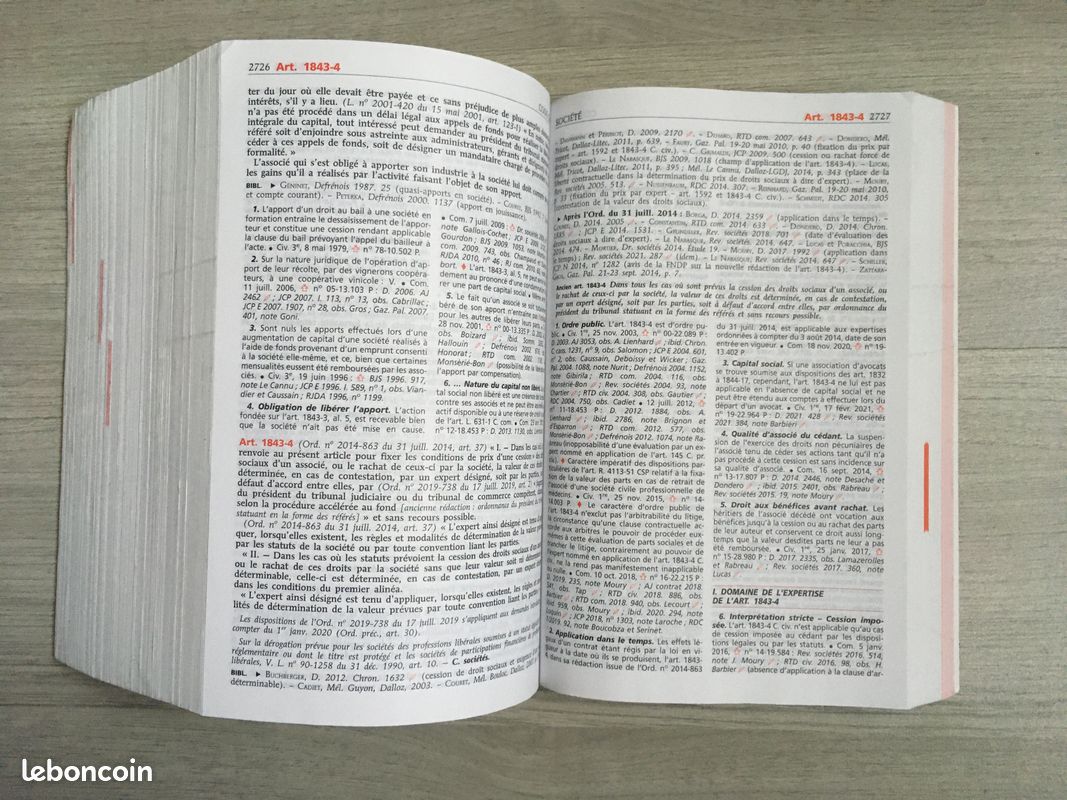 2726 Art. 1843-4
ter du jour où elle devait être payée et ce sans préjudice de plus amples
intérêts, s'il y a lieu. (L. nº 2001-420 du 15 mai 2001, art. 123-I) « En
n'a pas été procédé dans un délai légal aux appels de fonds pour réaliser
intégrale du capital, tout intéressé peut demander au président du tribunal
référé soit d'enjoindre sous astreinte aux administrateurs, gérants et
céder à ces appels de fonds, soit de désigner un mandataire chargé de
formalité. »
L'associé qui s'est obligé à apporter son industrie à la société lui doit
les gains qu'il a réalisés par l'activité faisant l'objet de son apport.
BIBL. ► GÉNINET, Défrénois 1987. 25 (quasi-apports en société). –
et compte courant). – PETERKA, Defrénois 2000. 1137 (apport en jouissance).
1. L'apport d'un droit au bail à une société en
formation entraîne le dessaisissement de l'appor-
teur et constitue une cession rendant applicable
la clause du bail prévoyant l'appel du bailleur à
l'acte. • Civ. 3e, 8 mai 1979, nº 78-10.502 P.
2. Sur la nature juridique de l'opération d'ap-
port de leur récolte, par des vignerons coopéra-
teurs, à une coopérative vinicole : V. • Com.
11 juill. 2006, nº 05-13.103 P : D. 2006. AJ
2462 ; JCP 2007. I. 113, nº 13, obs. Cabrillac;
JCP E 2007. 1907, nº 28, obs. Gros; Gaz. Pal. 2007.
401, note Goni.
3. Sont nuls les apports effectués lors d'une
augmentation de capital d'une société réalisés à
l'aide de fonds provenant d'un emprunt consenti
à la société elle-même, et ce, bien que certaines
mensualités eussent été remboursées par les asso-
ciés. • Civ. 3e, 19 juin 1996 : BJS 1996. 917,
note Le Cannu ; JCP E 1996. I. 589, nº 1, obs. Vian-
dier et Caussain ; RJDA 1996, nº 1199.
4. Obligation de libérer l'apport. L'action
fondée sur l'art. 1843-3, al. 5, est recevable bien
que la société n'ait pas été mise en cause.
• Com. 7 juill. 2009 :
note Gallois-Cochet ; JCP E
Gourdon ; BJS 2009. 1053, note
com. 2009. 743, obs. Champaud et
RJDA 2010, nº 46 ; RJ com. 2010.
bert. ♦ L'art. 1843-3, al. 5, ne peut servir
dement au prononcé d'une condamnation
rer une part de capital social.
5. Le fait qu'un associé se soit
béré de son apport n'entraîne pas
pour les autres de libérer leurs parts.
28 nov. 2001, nº 00-13.335 P : D.
obs. Boizard ; ibid. Somm.
Hallouin ; Defrénois 2002.
Honorat ; RTD com. 2002.
Monsèrié-Bon (possibilité de
l'apport par compensation).
6. ... Nature du capital non libéré.
tal social non libéré est une créance de
contre ses associés et ne peut être
actif disponible ou à une réserve de
de l'art. L. 631-1 C. com. • Com. 23
nº 12-18.453 P : D. 2013. 1130, obs. Lienhard
Art. 1843-4 (Ord. nº 2014-863 du 31 juill. 2014, art. 37) « I. – Dans les cas où
renvoie au présent article pour fixer les conditions de prix d'une cession
sociaux d'un associé, ou le rachat de ceux-ci par la société, la valeur de ces droits
déterminée, en cas de contestation, par un expert désigné, soit par les parties,
défaut d'accord entre elles, par (Ord. nº 2019-738 du 17 juill. 2019, art. 2) «
du président du tribunal judiciaire ou du tribunal de commerce compétent,
selon la procédure accélérée au fond [ancienne rédaction : ordonnance du président du tribunal
statuant en la forme des référés] » et sans recours possible.
(Ord. nº 2014-863 du 31 juill. 2014, art. 37) « L'expert ainsi désigné est tenu d'appli-
quer, lorsqu'elles existent, les règles et modalités de détermination de la valeur
par les statuts de la société ou par toute convention liant les parties.
« II. – Dans les cas où les statuts prévoient la cession des droits sociaux d'un
ou le rachat de ces droits par la société sans que leur valeur soit ni déterminée ni
déterminable, celle-ci est déterminée, en cas de contestation, par un expert
dans les conditions du premier alinéa.
« L'expert ainsi désigné est tenu d'appliquer, lorsqu'elles existent, les règles et
lités de détermination de la valeur prévues par toute convention liant les parties. »
Les dispositions de l'Ord. nº 2019-738 du 17 juill. 2019 s'appliquent aux demandes
compter du 1er janv. 2020 (Ord. préc., art. 30).
Sur la dérogation prévue pour les sociétés des professions libérales soumises à un statut
réglementaire ou dont le titre est protégé et les sociétés de participations financières de
libérales, V. L. nº 90-1258 du 31 déc. 1990, art. 10. – C. sociétés.
BIBL. ► BUCHBERGER, D. 2012. Chron. 1632 (cession de droit sociaux et
déterminable). – CADIET, Mél. Guyon, Dalloz, 2003. – COURET, Mél. Bouloc, Dalloz,
SOCIÉTÉ Art. 1843-4 2727
et PÉRINOT, D. 2009. 2170 . – DEHARO, RTD com. 2007. 643 . – DONDERO, Mél.
Tricot, Dalloz-Litec, 2011, p. 639. – FAURY, Gaz. Pal. 19-20 mai 2010, p. 40 (fixation du prix par
expert – art. 1592 et 1843-4 C. civ.). – C. GRIMALDI, JCP 2009. 500 (cession ou rachat forcé de
droits sociaux). – LE NABASQUE, BJS 2009. 1018 (champ d'application de l'art. 1843-4). – LUCAS,
Mél. Tricot, Dalloz-Litec, 2011, p. 395 ; Mél. Le Cannu, Dalloz-LGDJ, 2014, p. 343 (place de la
liberté contractuelle dans la détermination du prix de droits sociaux à dire d'expert). – MOURY,
Rev. sociétés 2005. 513. – NUSSENBAUM, RDC 2014. 307. – REINHARD, Gaz. Pal. 19-20 mai 2010,
p. 33 (fixation du prix par expert – art. 1592 et 1843-4 C. civ.). – SCHMIDT, RDC 2014. 305
(contestation de la valeur des droits sociaux).
► Après l'Ord. du 31 juill. 2014 : BORGA, D. 2014. 2359 (application dans le temps). –
COURET, D. 2014. 2005 . – CONSTANTIN, RTD com. 2014. 633 . – DONDERO, D. 2014. Chron.
1885 ; JCP E 2014. 1531. – GRUNDELER, Rev. sociétés 2018. 701 (date d'évaluation des
droits sociaux à dire d'expert). – LE NABASQUE, Rev. sociétés 2014. 647. – LUCAS et PORACCHIA, BJS
2014. 474. – MORTIER, Dr. sociétés 2014. Étude 19. – MOURY, D. 2017. 1992 (application dans
le temps) ; Rev. sociétés 2021. 287 (idem). – LE NABASQUE, Rev. sociétés 2014. 647 . – SCHILLER,
JCP N 2014, nº 1282 (avis de la FNDP sur la nouvelle rédaction de l'art. 1843-4). – ZATTARA-
GROS, Gaz. Pal. 21-23 sept. 2014, p. 7.
Ancien art. 1843-4 Dans tous les cas où sont prévus la cession des droits sociaux d'un associé, ou
le rachat de ceux-ci par la société, la valeur de ces droits est déterminée, en cas de contestation,
par un expert désigné, soit par les parties, soit à défaut d'accord entre elles, par ordonnance du
président du tribunal statuant en la forme des référés et sans recours possible.
1. Ordre public. L'art. 1843-4 est d'ordre pu-
blic. • Civ. 1re, 25 nov. 2003, nº 00-22.089 P :
D. 2003. AJ 3053, obs. A. Lienhard ; ibid. Chron.
C. cass. 1231, nº 9, obs. Salomon ; JCP E 2004. 601,
nº 2, obs. Caussain, Deboissy et Wicker ; Gaz.
Pal. 2004. 1088, note Nurit ; Defrénois 2004. 1152,
note Gibirila ; RTD com. 2004. 116, obs.
Monsèrié-Bon ; Rev. sociétés 2004. 93, note
Chartier ; RTD civ. 2004. 308, obs. Gautier ;
RDC 2004. 750, obs. Cadiet • 12 juill. 2012,
nº 11-18.453 P : D. 2012. 1884, obs. A.
Lienhard ; ibid. 2786, note Brignon et
d'Esparron ; RTD com. 2012. 577, obs.
Monsèrié-Bon ; Defrénois 2012. 1074, note Ra-
breau (inopposabilité d'une évaluation par un ex-
pert nommé en application de l'art. 145 C. pr.
civ.). ♦ Caractère impératif des dispositions par-
ticulières de l'art. R. 4113-51 CSP relatif à la fixa-
tion de la valeur des parts en cas de retrait de
l'associé d'une société civile professionnelle de
médecins. • Civ. 1re, 25 nov. 2015, nº 14-
14.003 P. ♦ Le caractère d'ordre public de
l'art. 1843-4 n'exclut pas l'arbitrabilité du litige,
la circonstance qu'une clause contractuelle ac-
corde aux arbitres le pouvoir de procéder eux-
mêmes à cette évaluation de parts sociales et de
trancher le litige, contrairement au pouvoir de
l'expert nommé en application de l'art. 1843-4 C.
civ., ne la rend pas manifestement inapplicable
ou nulle. • Com. 10 oct. 2018, nº 16-22.215 P :
D. 2019. 235, note Moury ; AJ contrat 2018.
obs. Tap ; RTD civ. 2018. 886, obs.
Barbier ; RTD com. 2018. 940, obs. Lecourt ;
ibid. 959, obs. Moury ; ibid. 2020. 294, note
Loquin ; JCP 2018, nº 1303, note Laroche ; RDC
2019. 92, note Boucobza et Serinet.
2. Application dans le temps. Les effets lé-
gaux d'un contrat étant régis par la loi en vi-
gueur à la date où ils se produisent, l'art. 1843-
4 dans sa rédaction issue de l'Ord. nº 2014-863
du 31 juill. 2014, est applicable aux expertises
ordonnées à compter du 3 août 2014, date de son
entrée en vigueur. • Com. 18 nov. 2020, nº 19-
13.402 P
3. Capital social. Si une association d'avocats
se trouve soumise aux dispositions des art. 1832
à 1844-17, cependant, l'art. 1843-4 ne lui est pas
applicable en l'absence de capital social et ne
peut être étendu aux comptes à effectuer lors du
départ d'un avocat. • Civ. 1re, 17 févr. 2021,
nº 19-22.964 P : D. 2021. 428 ; Rev. sociétés
2021. 384, note Barbiéri
4. Qualité d'associé du cédant. La suspen-
sion de l'exercice des droits non pécuniaires de
l'associé tenu de céder ses actions tant qu'il n'a
pas procédé à cette cession est sans incidence sur
sa qualité d'associé. • Com. 16 sept. 2014,
nº 13-17.807 P : D. 2014. 2446, note Desaché et
Dondero ; ibid. 2015. 2401, obs. Rabreau ;
Rev. sociétés 2015. 19, note Moury .
5. Droit aux bénéfices avant rachat. Les
héritiers de l'associé décédé ont vocation aux
bénéfices jusqu'à la cession ou au rachat des parts
de leur auteur et conservent ce droit aussi long-
temps que la valeur desdites parts ne leur a pas
été remboursée. • Civ. 1re, 25 janv. 2017,
nº 15-28.980 P : D. 2017. 2335, obs. Lamazerolles
et Rabreau ; Rev. sociétés 2017. 360, note
Lucas
I. DOMAINE DE L'EXPERTISE
DE L'ART. 1843-4
6. Interprétation stricte – Cession impo-
sée. L'art. 1843-4 C. civ. n'est applicable qu'au cas
de cession imposée au cédant par les disposi-
tions légales ou par les statuts. • Com. 5 janv.
2016, nº 14-19.584 : Rev. sociétés 2016. 514,
note J. Moury ; RTD civ. 2016. 98, obs. H.
Barbier (absence d'application à la clause d'ar-
leboncoin